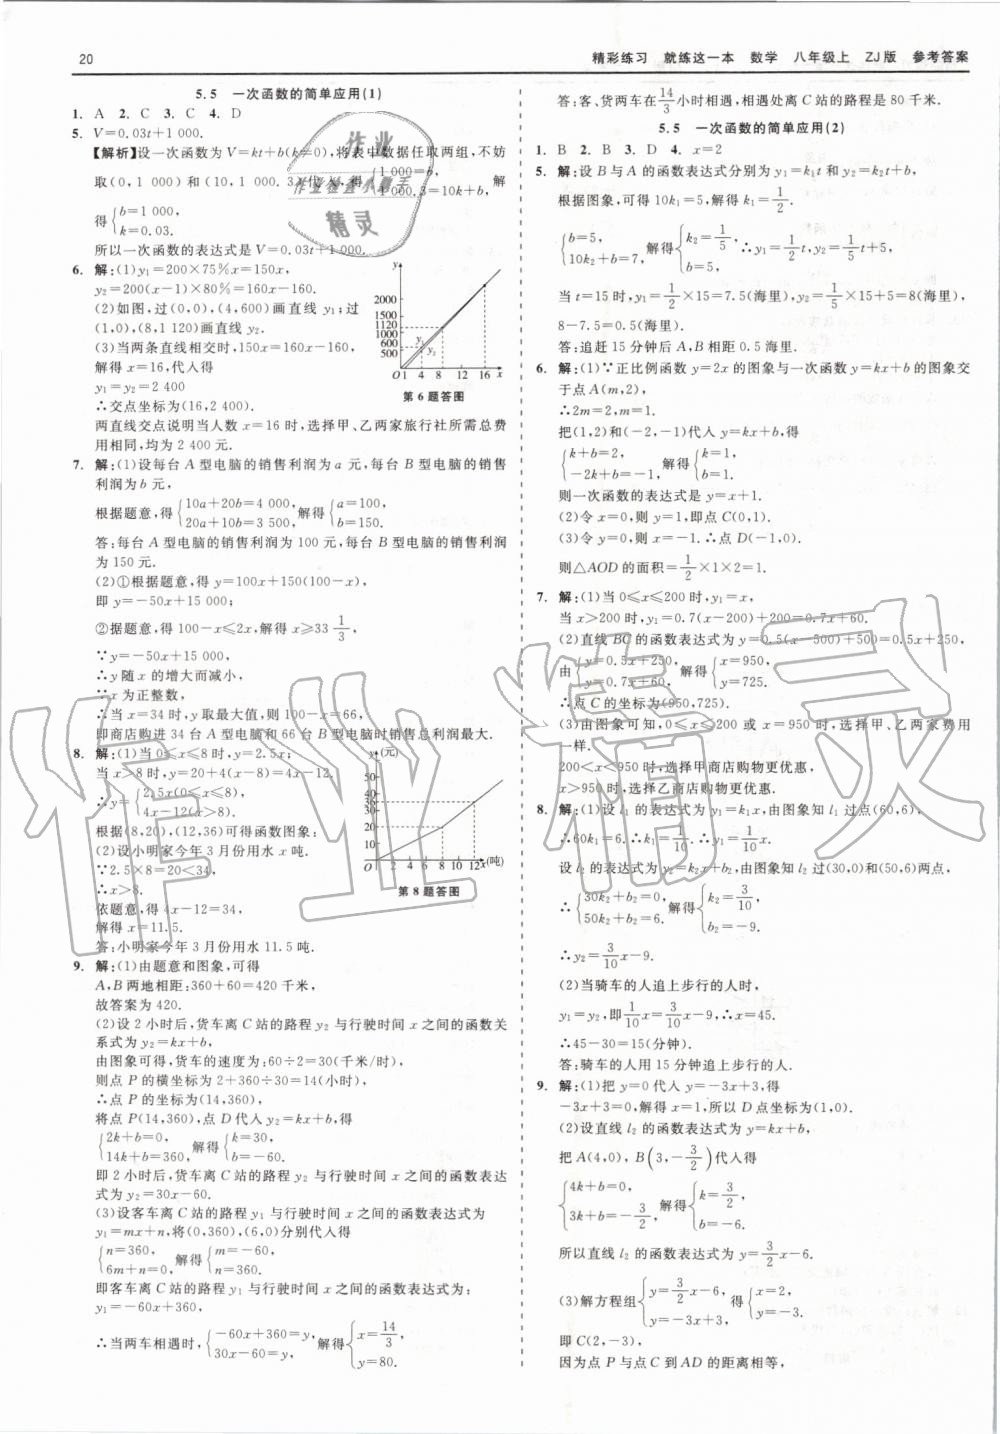 20
精彩练习　就练这一本　数学　八年级上　ZJ版　参考答案
5.5　一次函数的简单应用(1)
1. A　2. C　3. C　4. D
5. V=0.03t+1 000.
【解析】设一次函数为V=kt+b(k≠0),将表中数据任取两组,不妨
取(0,1 000)和(10,1 000.3)代入,得{1 000=b, 1 000.3=10k+b, 解
得{b=1 000, k=0.03.
所以一次函数的表达式是V=0.03t+1 000.
6. 解:(1)y₁=200×75%x=150x,
y₂=200(x-1)×80%=160x-160.
(2)如图,过(0,0),(4,600)画直线 y₁;过
(1,0),(8,1 120)画直线 y₂.
(3)当两条直线相交时,150x=160x-160,
解得 x=16,代入得
y₁=y₂=2 400
∴交点坐标为(16,2 400).
两直线交点说明当人数 x=16 时,选择甲、乙两家旅行社所需总费
用相同,均为 2 400 元.
y
2000
1500
1120
1000
600
500
y₁
y₂
O 1 4 8 12 16 x
第 6 题答图
7. 解:(1)设每台 A 型电脑的销售利润为 a 元,每台 B 型电脑的销售
利润为 b 元,
根据题意,得{10a+20b=4 000, 20a+10b=3 500, 解得{a=100, b=150.
答:每台 A 型电脑的销售利润为 100 元,每台 B 型电脑的销售利润
为 150 元.
(2)①根据题意,得 y=100x+150(100-x),
即 y=-50x+15 000;
②据题意,得 100-x≤2x,解得 x≥33 1/3,
∵y=-50x+15 000,
∴y 随 x 的增大而减小,
∵x 为正整数,
∴当 x=34 时,y 取最大值,则 100-x=66,
即商店购进 34 台 A 型电脑和 66 台 B 型电脑时销售总利润最大.
8. 解:(1)当 0≤x≤8 时,y=2.5x;
当 x>8 时,y=20+4(x-8)=4x-12.
∴y={2.5x(0≤x≤8), 4x-12(x>8).
根据(8,20),(12,36)可得函数图象:
(2)设小明家今年 3 月份用水 x 吨.
∵2.5×8=20<34,
∴x>8.
依题意,得 4x-12=34,
解得 x=11.5.
答:小明家今年 3 月份用水 11.5 吨.
y(元)
50
40
30
20
10
O 2 4 6 8 10 12 x(吨)
第 8 题答图
9. 解:(1)由题意和图象,可得
A,B 两地相距:360+60=420 千米,
故答案为 420.
(2)设 2 小时后,货车离 C 站的路程 y₂ 与行驶时间 x 之间的函数关
系式为 y₂=kx+b,
由图象可得,货车的速度为:60÷2=30(千米/时),
则点 P 的横坐标为 2+360÷30=14(小时),
∴点 P 的坐标为(14,360).
将点 P(14,360),点 D 代入 y₂=kx+b,得
{2k+b=0, 14k+b=360, 解得{k=30, b=-60.
即 2 小时后,货车离 C 站的路程 y₂ 与行驶时间 x 之间的函数表达
式为 y₂=30x-60.
(3)设客车离 C 站的路程 y₁ 与行驶时间 x 之间的函数表达式为
y₁=mx+n,将(0,360),(6,0)分别代入得
{n=360, 6m+n=0, 解得{m=-60, n=360.
即客车离 C 站的路程 y₁ 与行驶时间 x 之间的函数表达式为:
y₁=-60x+360,
∴当两车相遇时,{-60x+360=y, 30x-60=y, 解得{x=14/3, y=80.
答:客、货两车在14/3小时相遇,相遇处离 C 站的路程是 80 千米.
5.5　一次函数的简单应用(2)
1. B　2. B　3. D　4. x=2
5. 解:设 B 与 A 的函数表达式分别为 y₁=k₁t 和 y₂=k₂t+b,
根据图象,可得 10k₁=5,解得 k₁=1/2.
{b=5, 10k₂+b=7, 解得{k₂=1/5, b=5. ∴y₁=1/2 t,y₂=1/5 t+5,
当 t=15 时,y₁=1/2×15=7.5(海里),y₂=1/5×15+5=8(海里),
8-7.5=0.5(海里).
答:追赶 15 分钟后 A,B 相距 0.5 海里.
6. 解:(1)∵正比例函数 y=2x 的图象与一次函数 y=kx+b 的图象交
于点 A(m,2),
∴2m=2,m=1.
把(1,2)和(-2,-1)代入 y=kx+b,得
{k+b=2, -2k+b=-1, 解得{k=1, b=1.
则一次函数的表达式是 y=x+1.
(2)令 x=0,则 y=1,即点 C(0,1).
(3)令 y=0,则 x=-1.∴点 D(-1,0).
则△AOD 的面积=1/2×1×2=1.
7. 解:(1)当 0≤x≤200 时,y₁=x;
当 x>200 时,y₁=0.7(x-200)+200=0.7x+60.
(2)直线 BC 的函数表达式为 y=0.5(x-500)+500=0.5x+250,
由{y=0.5x+250, y=0.7x+60, 解得{x=950, y=725.
∴点 C 的坐标为(950,725).
(3)由图象可知,0≤x≤200 或 x=950 时,选择甲、乙两家费用
一样.
200<x<950 时,选择甲商店购物更优惠,
x>950 时,选择乙商店购物更优惠.
8. 解:(1)设 l₁ 的表达式为 y₁=k₁x,由图象知 l₁ 过点(60,6),
∴60k₁=6.∴k₁=1/10.∴y₁=1/10 x.
设 l₂ 的表达式为 y₂=k₂x+b₂,由图象知 l₂ 过(30,0)和(50,6)两点,
∴{30k₂+b₂=0, 50k₂+b₂=6. 解得{k₂=3/10, b₂=-9.
∴y₂=3/10 x-9.
(2)当骑车的人追上步行的人时,
y₁=y₂,即1/10 x=3/10 x-9,∴x=45.
∴45-30=15(分钟).
答:骑车的人用 15 分钟追上步行的人.
9. 解:(1)把 y=0 代入 y=-3x+3,得
-3x+3=0,解得 x=1,所以 D 点坐标为(1,0).
(2)设直线 l₂ 的函数表达式为 y=kx+b,
把 A(4,0),B(3,-3/2)代入得
{4k+b=0, 3k+b=-3/2, 解得{k=3/2, b=-6.
所以直线 l₂ 的函数表达式为 y=3/2 x-6.
(3)解方程组{y=3/2 x-6, y=-3x+3, 得{x=2, y=-3.
即 C(2,-3),
因为点 P 与点 C 到 AD 的距离相等,
作业
作业检查小助手
精灵
作业精灵